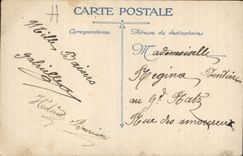 CARTE POSTALE
Correspondance
Adresse du destinataire
Mille Baisers
Mademoiselle
Regina
au gd Katz
Rue des amoureux